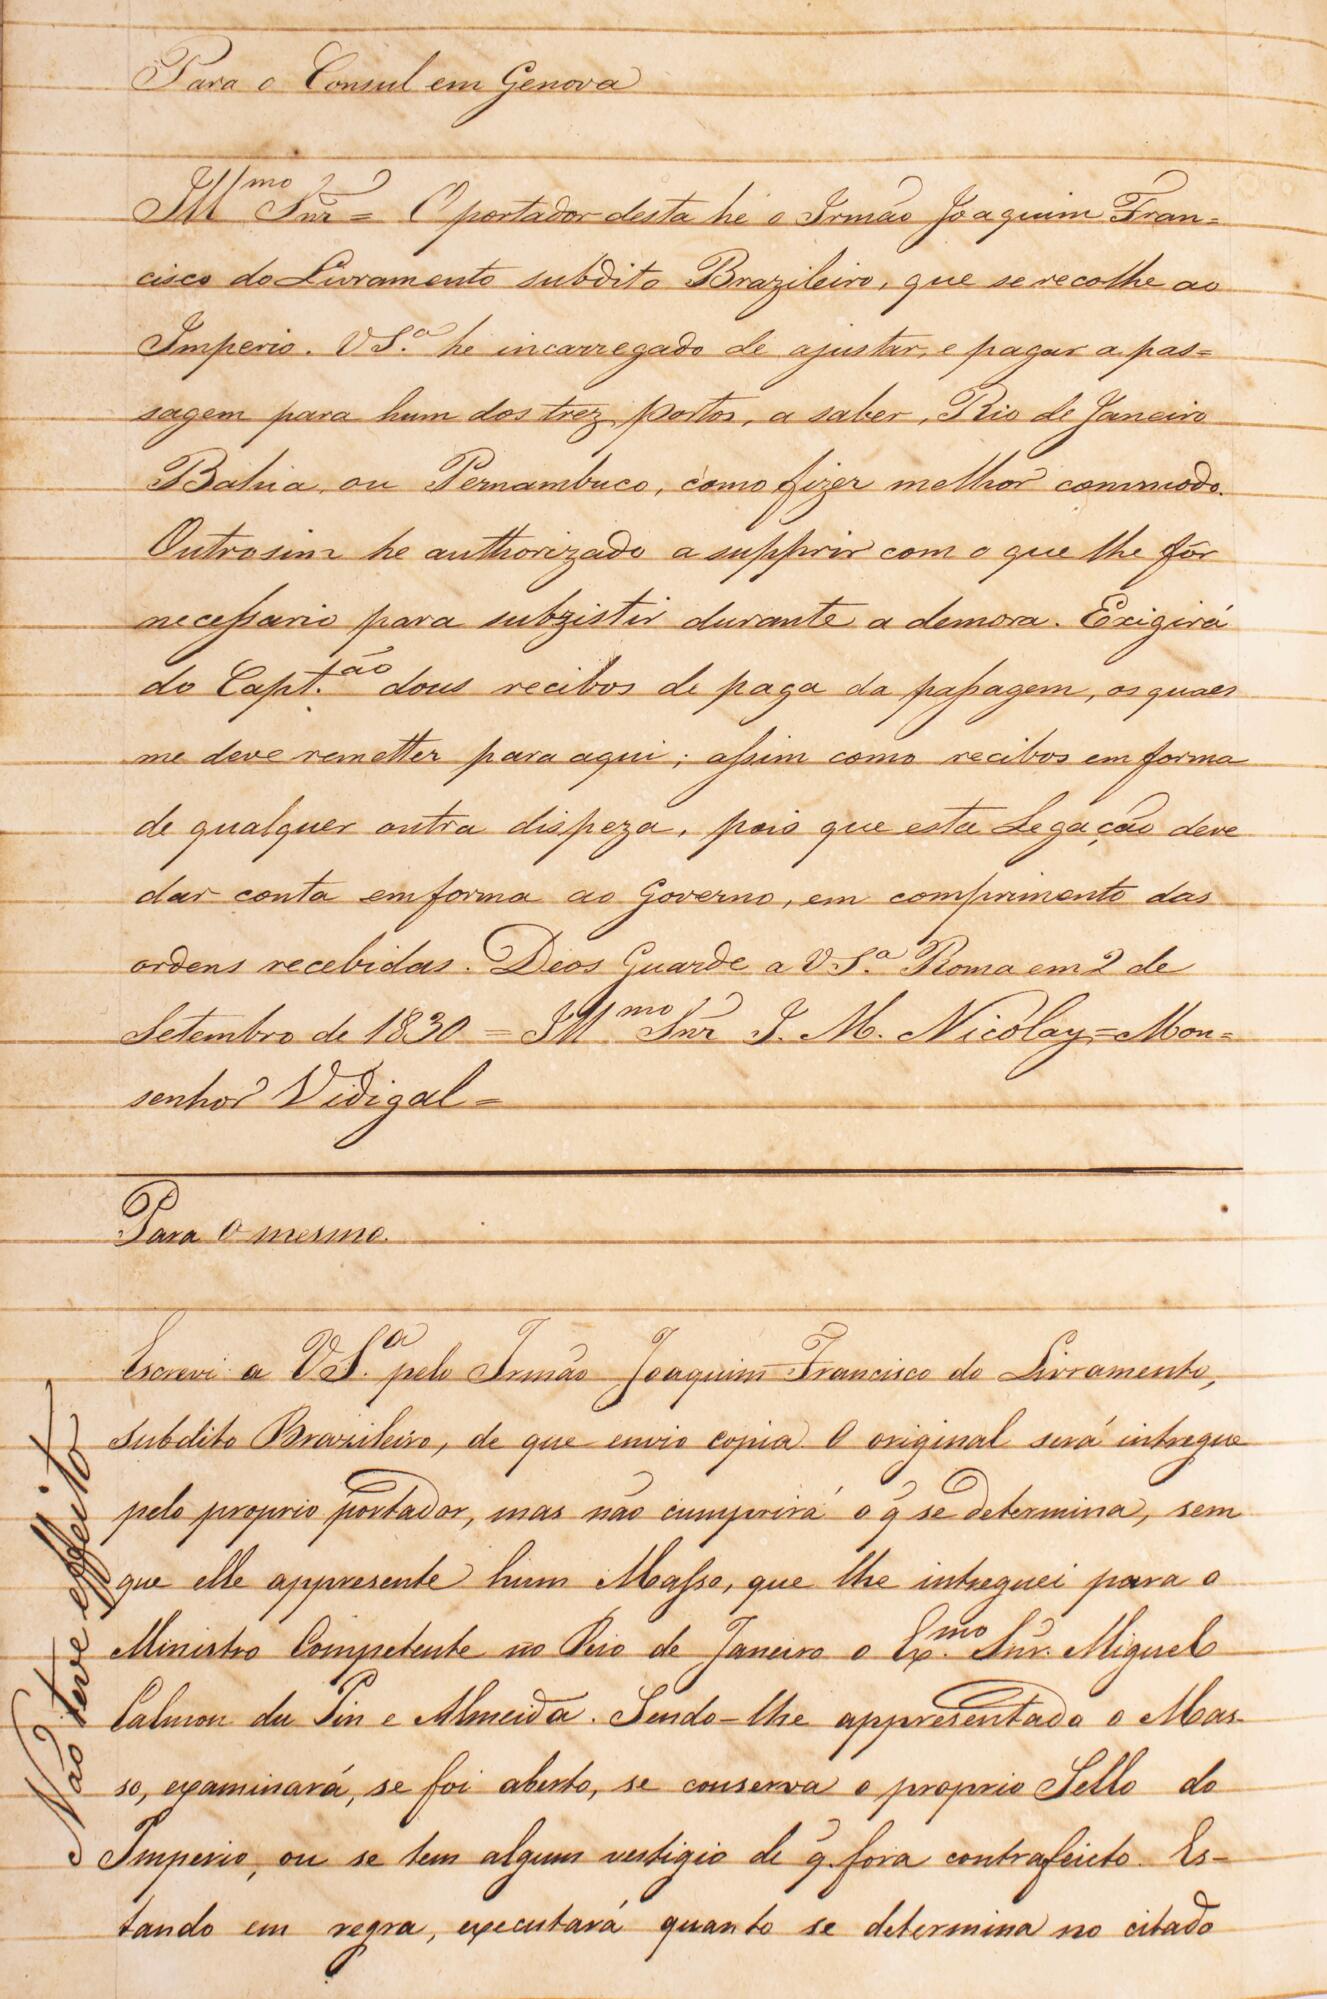 Para o Consul em Genova
Ill.mo Snr = O portador desta he o Irmão Joaquim Fran=
cisco do Livramento subdito Brazileiro, que se recolhe ao
Imperio. V S.ª he incarregado de ajustar, e pagar a pas=
sagem para hum dos trez portos, a saber, Rio de Janeiro
Bahia, ou Pernambuco, como fizer melhor commodo.
Outrosim he authorizado a supprir com o que lhe fôr
necessario para subzistir durante a demora. Exigirá
do Capt.ão dous recibos de paga da passagem, os quaes
me deve remetter para aqui; assim como recibos em forma
de qualquer outra dispeza, pois que esta Legação deve
dar conta em forma ao Governo, em comprimento das
ordens recebidas. Deos Guarde a V S.ª Roma em 2 de
Setembro de 1830 = Ill.mo Snr J. M. Nicolay = Mon=
senhor Vidigal =
Para o mesmo.
Escrevi a V S.ª pelo Irmão Joaquim Francisco do Livramento,
subdito Brazileiro, de que envio copia. O original será intregue
pelo proprio portador, mas não cumprirá o q̃ se determina, sem
que elle appresente hum Masso, que lhe intreguei para o
Ministro Competente no Rio de Janeiro o Ex.mo Snr. Miguel
Calmon du Pin e Almeida. Sendo-lhe appresentado o Mas-
so, examinará, se foi aberto, se conserva o proprio Sello do
Imperio, ou se tem algum vestigio de q̃ fora contrafeicto. Es-
tando em regra, executará quanto se determina no citado
Não teve effeito